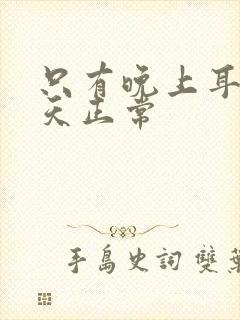 只有晚上耳
天正常
手島史詞 雙葉